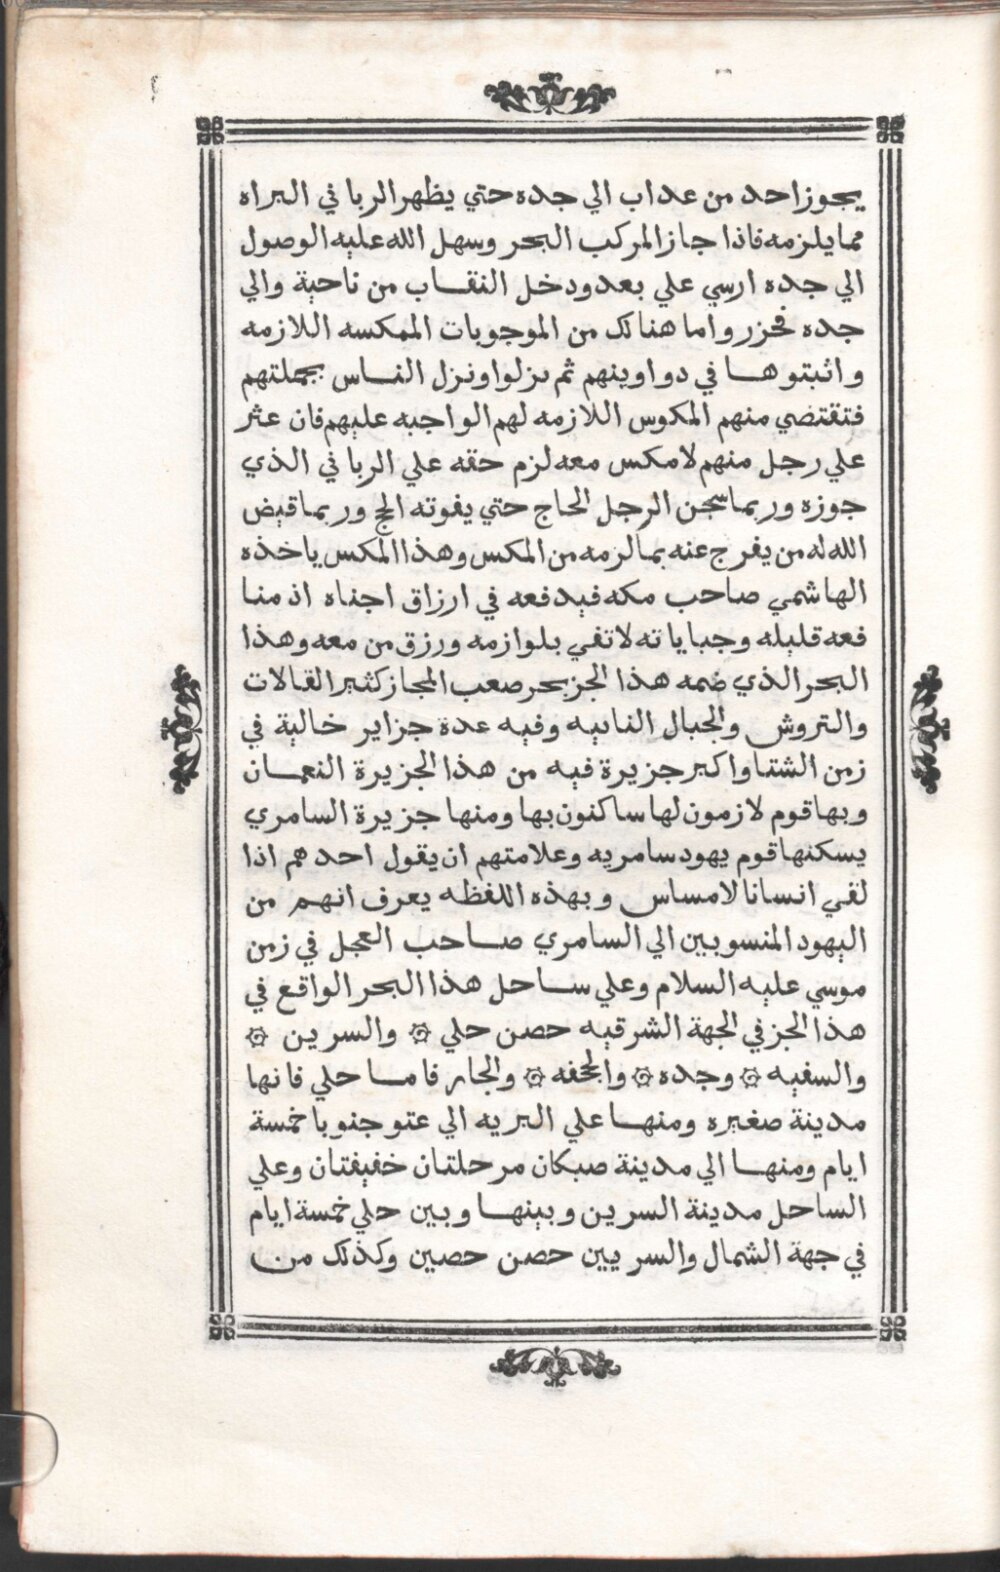 يجوز احد من عداب الي جده حتي يظهر الربا في البراه
مما يلزمه فاذا جاز المركب البحر وسهل الله عليه الوصول
الي جده ارسي علي بعد ودخل النقاب من ناحية والي
جده فحزروا ما هنالك من الموجوبات الممكسه اللازمه
واثبتوها في دواوينهم ثم نزلوا ونزل الناس بجملتهم
فتقتضي منهم المكوس اللازمه لهم الواجبه عليهم فان عثر
علي رجل منهم لا مكس معه لزم حقه علي الربا في الذي
جوزه وربما سجن الرجل الحاج حتي يفوته الحج وربما قيض
الله له من يفرج عنه بما لزمه من المكس وهذا المكس ياخذه
الهاشمي صاحب مكه فيدفعه في ارزاق اجناه اذ منا
فعه قليله وجباياته لا تفي بلوازمه ورزق من معه وهذا
البحر الذي ضمه هذا الجز بحر صعب المجاز كثير القالات
والتروش والجبال النابيه وفيه عدة جزاير خالية في
زمن الشتا واكبر جزيرة فيه من هذا الجزيرة النعمان
وبها قوم لازمون لها ساكنون بها ومنها جزيرة السامري
يسكنها قوم يهود سامريه وعلامتهم ان يقول احدهم اذا
لقي انسانا لامساس وبهذه اللفظه يعرف انهم من
اليهود المنسوبين الي السامري صاحب العجل في زمن
موسي عليه السلام وعلي ساحل هذا البحر الواقع في
هذا الجز في الجهة الشرقيه حصن حلي ۞ والسرين ۞
والسفيه ۞ وجده ۞ والجحفه ۞ والجار فاما حلي فانها
مدينة صغيره ومنها علي البريه الي عتو جنوبا خمسة
ايام ومنها الي مدينة صبكان مرحلتان خفيفتان وعلي
الساحل مدينة السرين وبينها وبين حلي خمسة ايام
في جهة الشمال والسريين حصن حصين وكذلك من